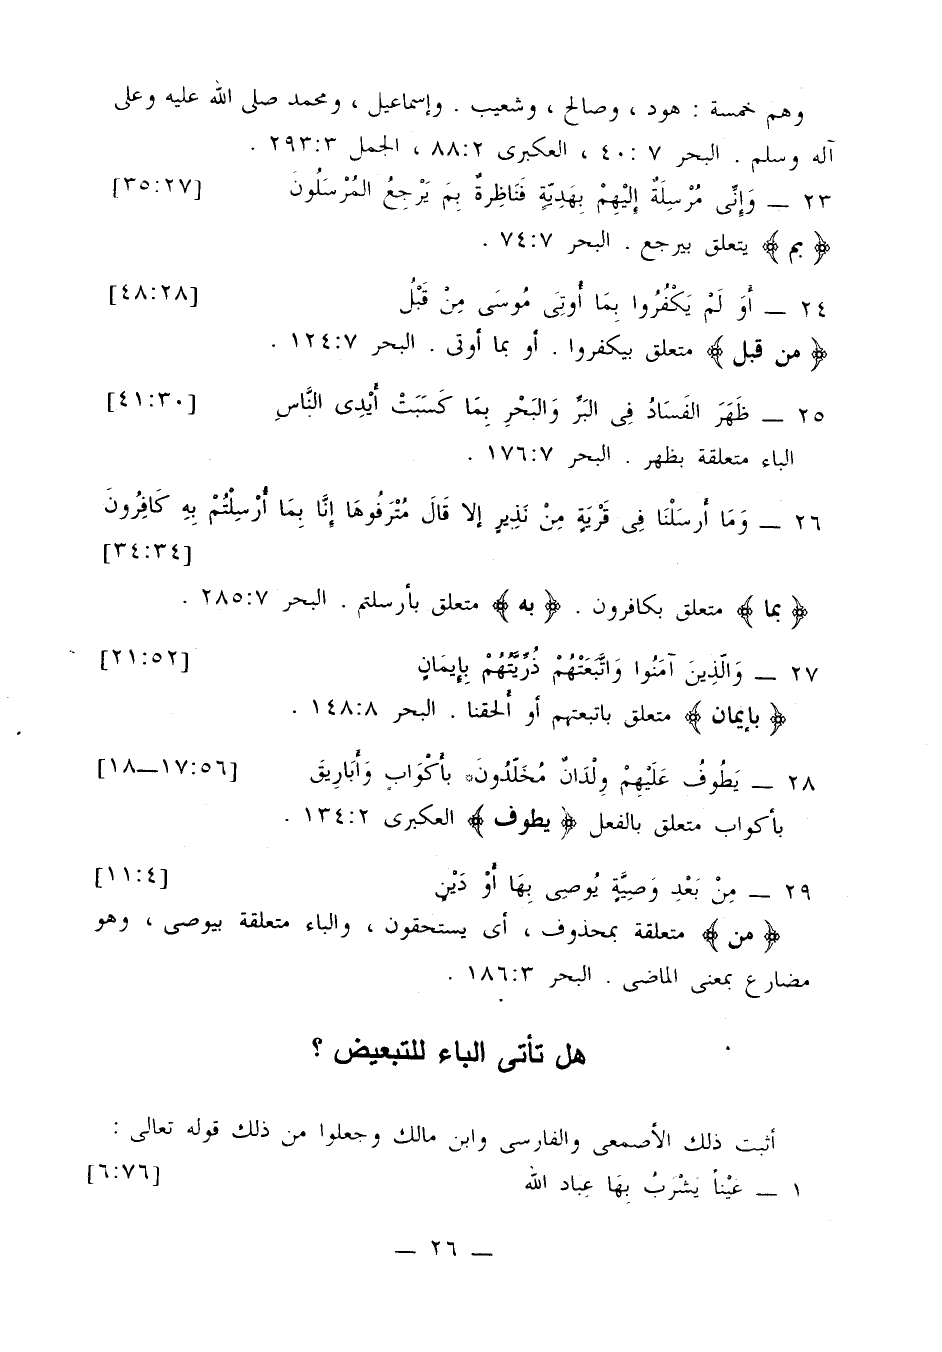 وهم خمسة : هود ، وصالح ، وشعيب . وإسماعيل ، ومحمد صلى الله عليه وعلى
آله وسلم . البحر ٧ :٤٠ ، العكبرى ٨٨:٢ ، الجمل ٢٩٣:٣ .
٢٣ — وَإِنِّى مُرْسِلَةٌ إِلَيْهِمْ بِهَدِيّةٍ فَنَاظِرةٌ بِمَ يَرْجِعُ المُرْسَلُونَ [٣٥:٢٧]
﴿ بم ﴾ يتعلق بيرجع . البحر ٧٤:٧ .
٢٤ — أَوَ لَمْ يَكْفُرُوا بِمَا أُوتِىَ مُوسَى مِنْ قَبْلُ [٤٨:٢٨]
﴿ من قبل ﴾ متعلق بيكفروا . أو بما أوتى . البحر ١٢٤:٧ .
٢٥ — ظَهَرَ الفَسَادُ فِى البَرِّ وَالبَحْرِ بِمَا كَسَبَتْ أَيْدِى النَّاسِ [٤١:٣٠]
الباء متعلقة بظهر . البحر ١٧٦:٧ .
٢٦ — وَمَا أَرسَلْنَا فِى قَرْيَةٍ مِنْ نَذِيرٍ إلا قَالَ مُتْرَفُوهَا إِنَّا بِمَا أُرْسِلْتُمْ بِهِ كَافِرُونَ
[٣٤:٣٤]
﴿ بما ﴾ متعلق بكافرون . ﴿ به ﴾ متعلق بأرسلتم . البحر ٢٨٥:٧ .
٢٧ — وَالّذِينَ آمَنُوا وَاتَّبَعَتْهُمْ ذُرِّيَّتُهُمْ بِإِيمَانٍ [٢١:٥٢]
﴿ بإيمان ﴾ متعلق باتبعتهم أو ألحقنا . البحر ١٤٨:٨ .
٢٨ — يَطُوفُ عَلَيْهِمْ وِلْدَانٌ مُخَلّدُونَ* بأَكْوَابٍ وَأَبَارِيقَ [١٧:٥٦—١٨]
بأكواب متعلق بالفعل ﴿ يطوف ﴾ العكبرى ١٣٤:٢ .
٢٩ — مِنْ بَعْدِ وَصِيَّةٍ يُوصِى بِهَا أَوْ دَيْنٍ [١١:٤]
﴿ من ﴾ متعلقة بمحذوف ، أى يستحقون ، والباء متعلقة بيوصى ، وهو
مضارع بمعنى الماضى . البحر ١٨٦:٣ .
هل تأتى الباء للتبعيض ؟
أثبت ذلك الأصمعى والفارسى وابن مالك وجعلوا من ذلك قوله تعالى :
١ — عَيْناً يَشْرَبُ بِهَا عِباد الله [٦:٧٦]
— ٢٦ —